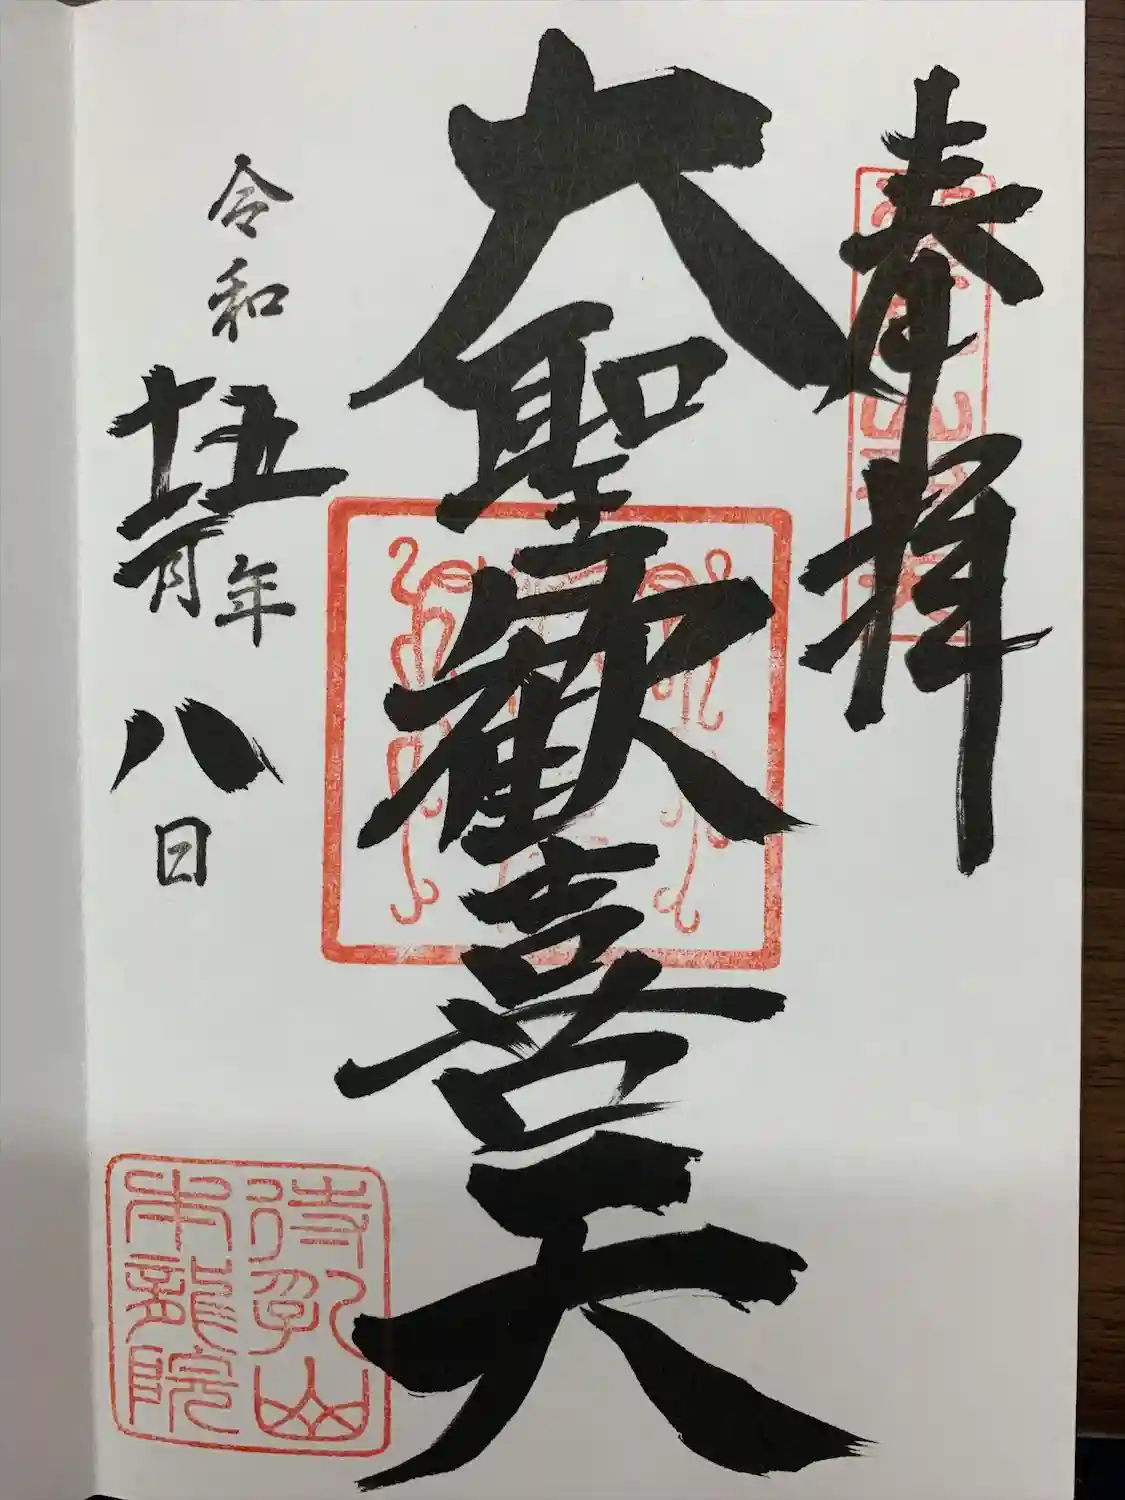 奉拝
大聖歓喜天
令和五年
十一月八日
待乳山
本龍院